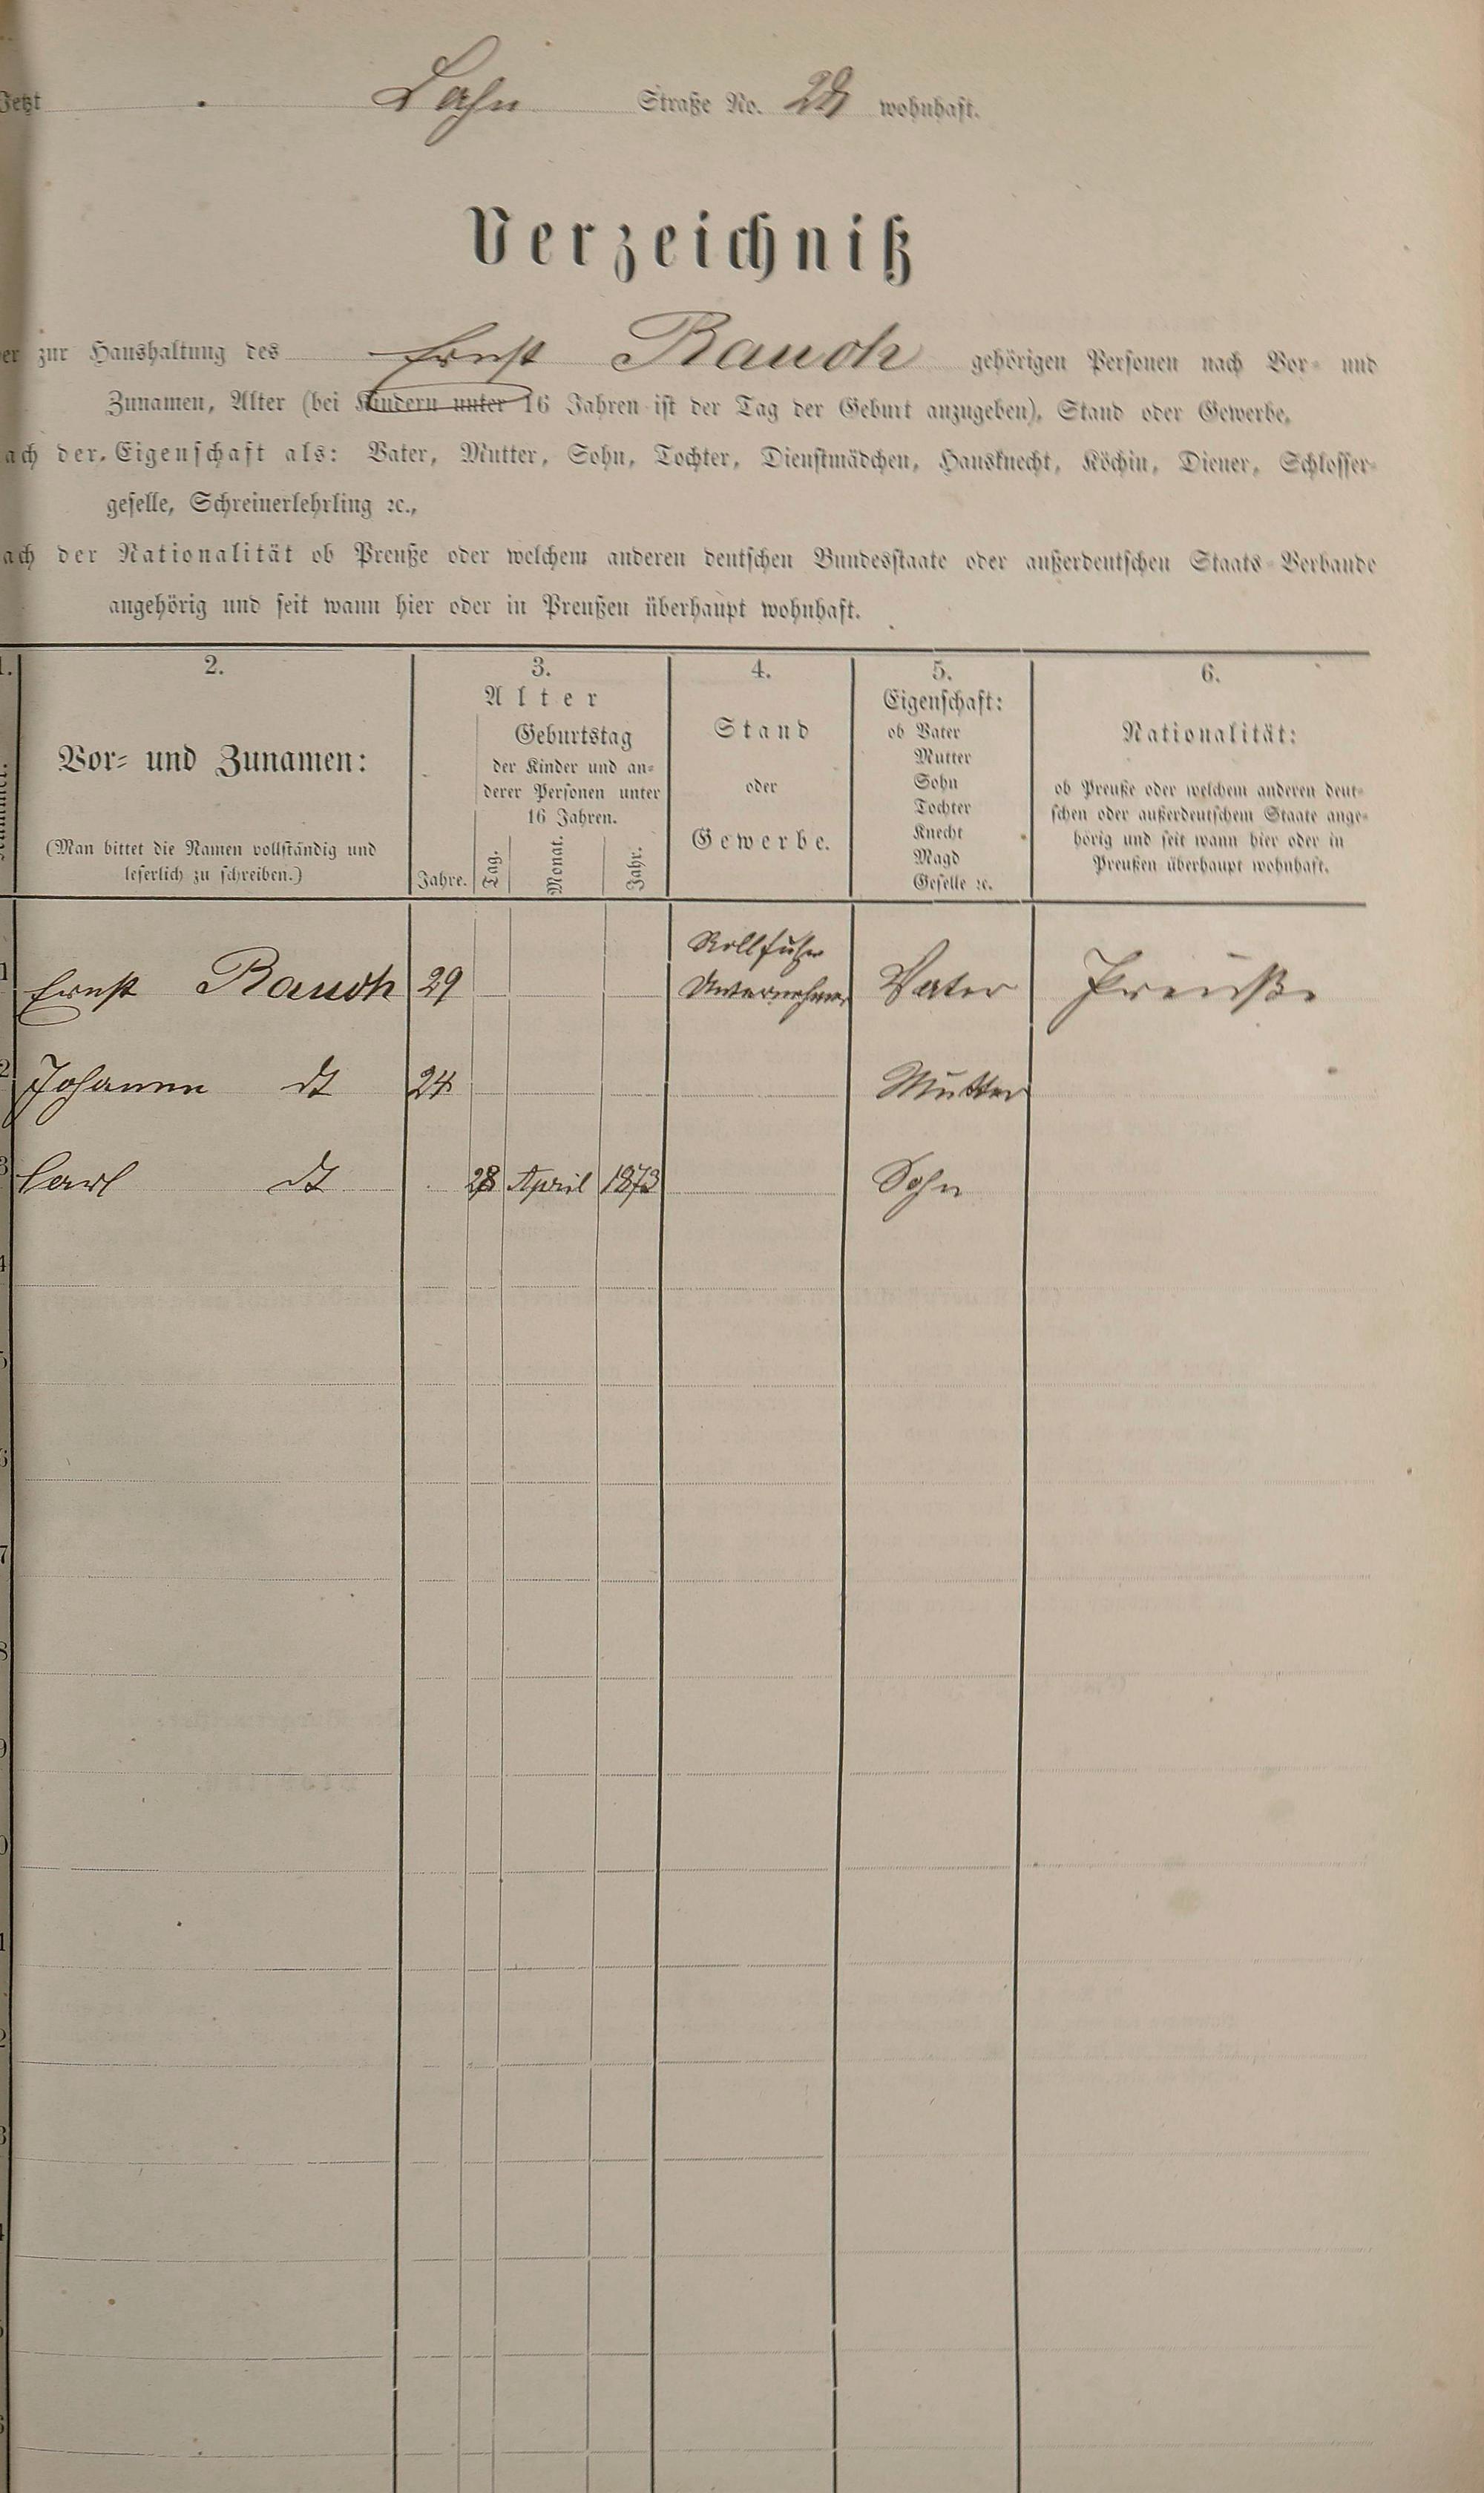 Jetzt Lahn Straße No. 28 wohnhaft.
Verzeichniß
er zur Haushaltung des Ernst Rauch gehörigen Personen nach Vor- und
Zunamen, Alter (bei Kindern unter 16 Jahren ist der Tag der Geburt anzugeben), Stand oder Gewerbe,
ach der Eigenschaft als: Vater, Mutter, Sohn, Tochter, Dienstmädchen, Hausknecht, Köchin, Diener, Schlosser-
geselle, Schreinerlehrling ꝛc.,
ach der Nationalität ob Preuße oder welchem anderen deutschen Bundesstaate oder außerdeutschen Staats-Verbande
angehörig und seit wann hier oder in Preußen überhaupt wohnhaft.
1. 2. 3. 4. 5. 6.
Vor- und Zunamen:
(Man bittet die Namen vollständig und
leserlich zu schreiben.)
Alter
Geburtstag
der Kinder und an-
derer Personen unter
16 Jahren.
Jahre. Tag. Monat. Jahr.
Stand
oder
Gewerbe.
Eigenschaft:
ob Vater
Mutter
Sohn
Tochter
Knecht
Magd
Geselle ꝛc.
Nationalität:
ob Preuße oder welchem anderen deut-
schen oder außerdeutschem Staate ange-
hörig und seit wann hier oder in
Preußen überhaupt wohnhaft.
1 Ernst Rauch 29 Rollfuhr Unternehmer Vater Preuße
2 Johanna dt 24 Mutter
3 Carl dt 28 April 1873 Sohn
4
5
6
7
8
9
0
1
2
3
4
5
6